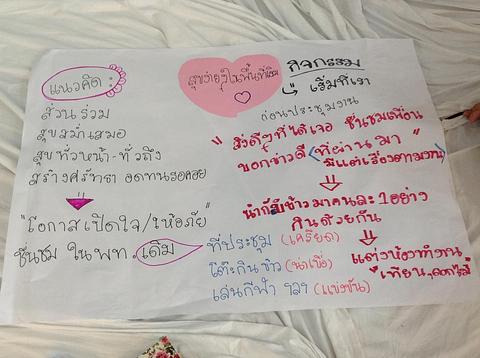 สุขง่ายๆในพื้นที่เดิม
แนวคิด :
ส่วนร่วม
สุขสม่ำเสมอ
สุขทั่วหน้า - ทั่วถึง
สร้างศรัทธา อดทนรอคอย
"โอกาสเปิดใจ/ให้อภัย"
ชื่นชม ใน พท. เดิม
กิจกรรม
เริ่มที่เรา
ก่อนประชุมงาน
"สิ่งดีๆที่ได้เจอ ชื่นชมเพื่อน
บอกข่าวดี (ที่ผ่านมา"
มีแต่เรื่องตามงาน)
นำกับข้าวมาคนละ 1 อย่าง
กินด้วยกัน
ที่ประชุม (เครียด)
โต๊ะกินข้าว (น่าเบื่อ)
เล่นกีฬา ฯลฯ (แข่งขัน)
แต่งห้องทำงาน
"เทียน, ดอกไม้"